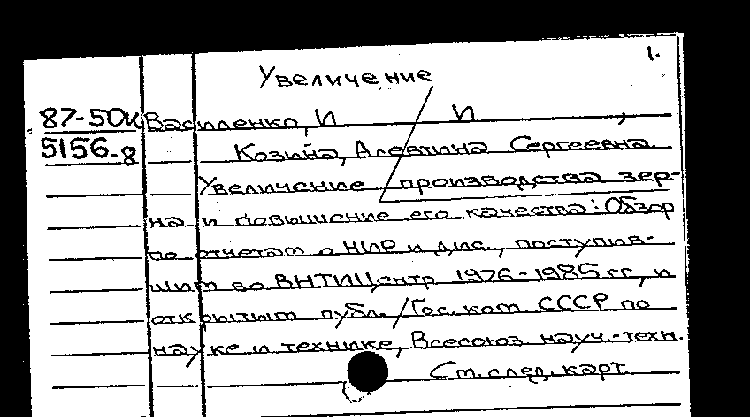 1.
Увеличение
87-50И Василенко, И И ,
5156.8 Козина, Алевтина Сергеевна
Увеличение производства зер-
на и повышение его качества: Обзор
по отчетам о НИР и дис., поступив-
шим во ВНТИЦентр 1976-1985 гг., и
открытым публ. / Гос. ком. СССР по
науке и технике, Всесоюз. науч.-техн.
См. след. карт.